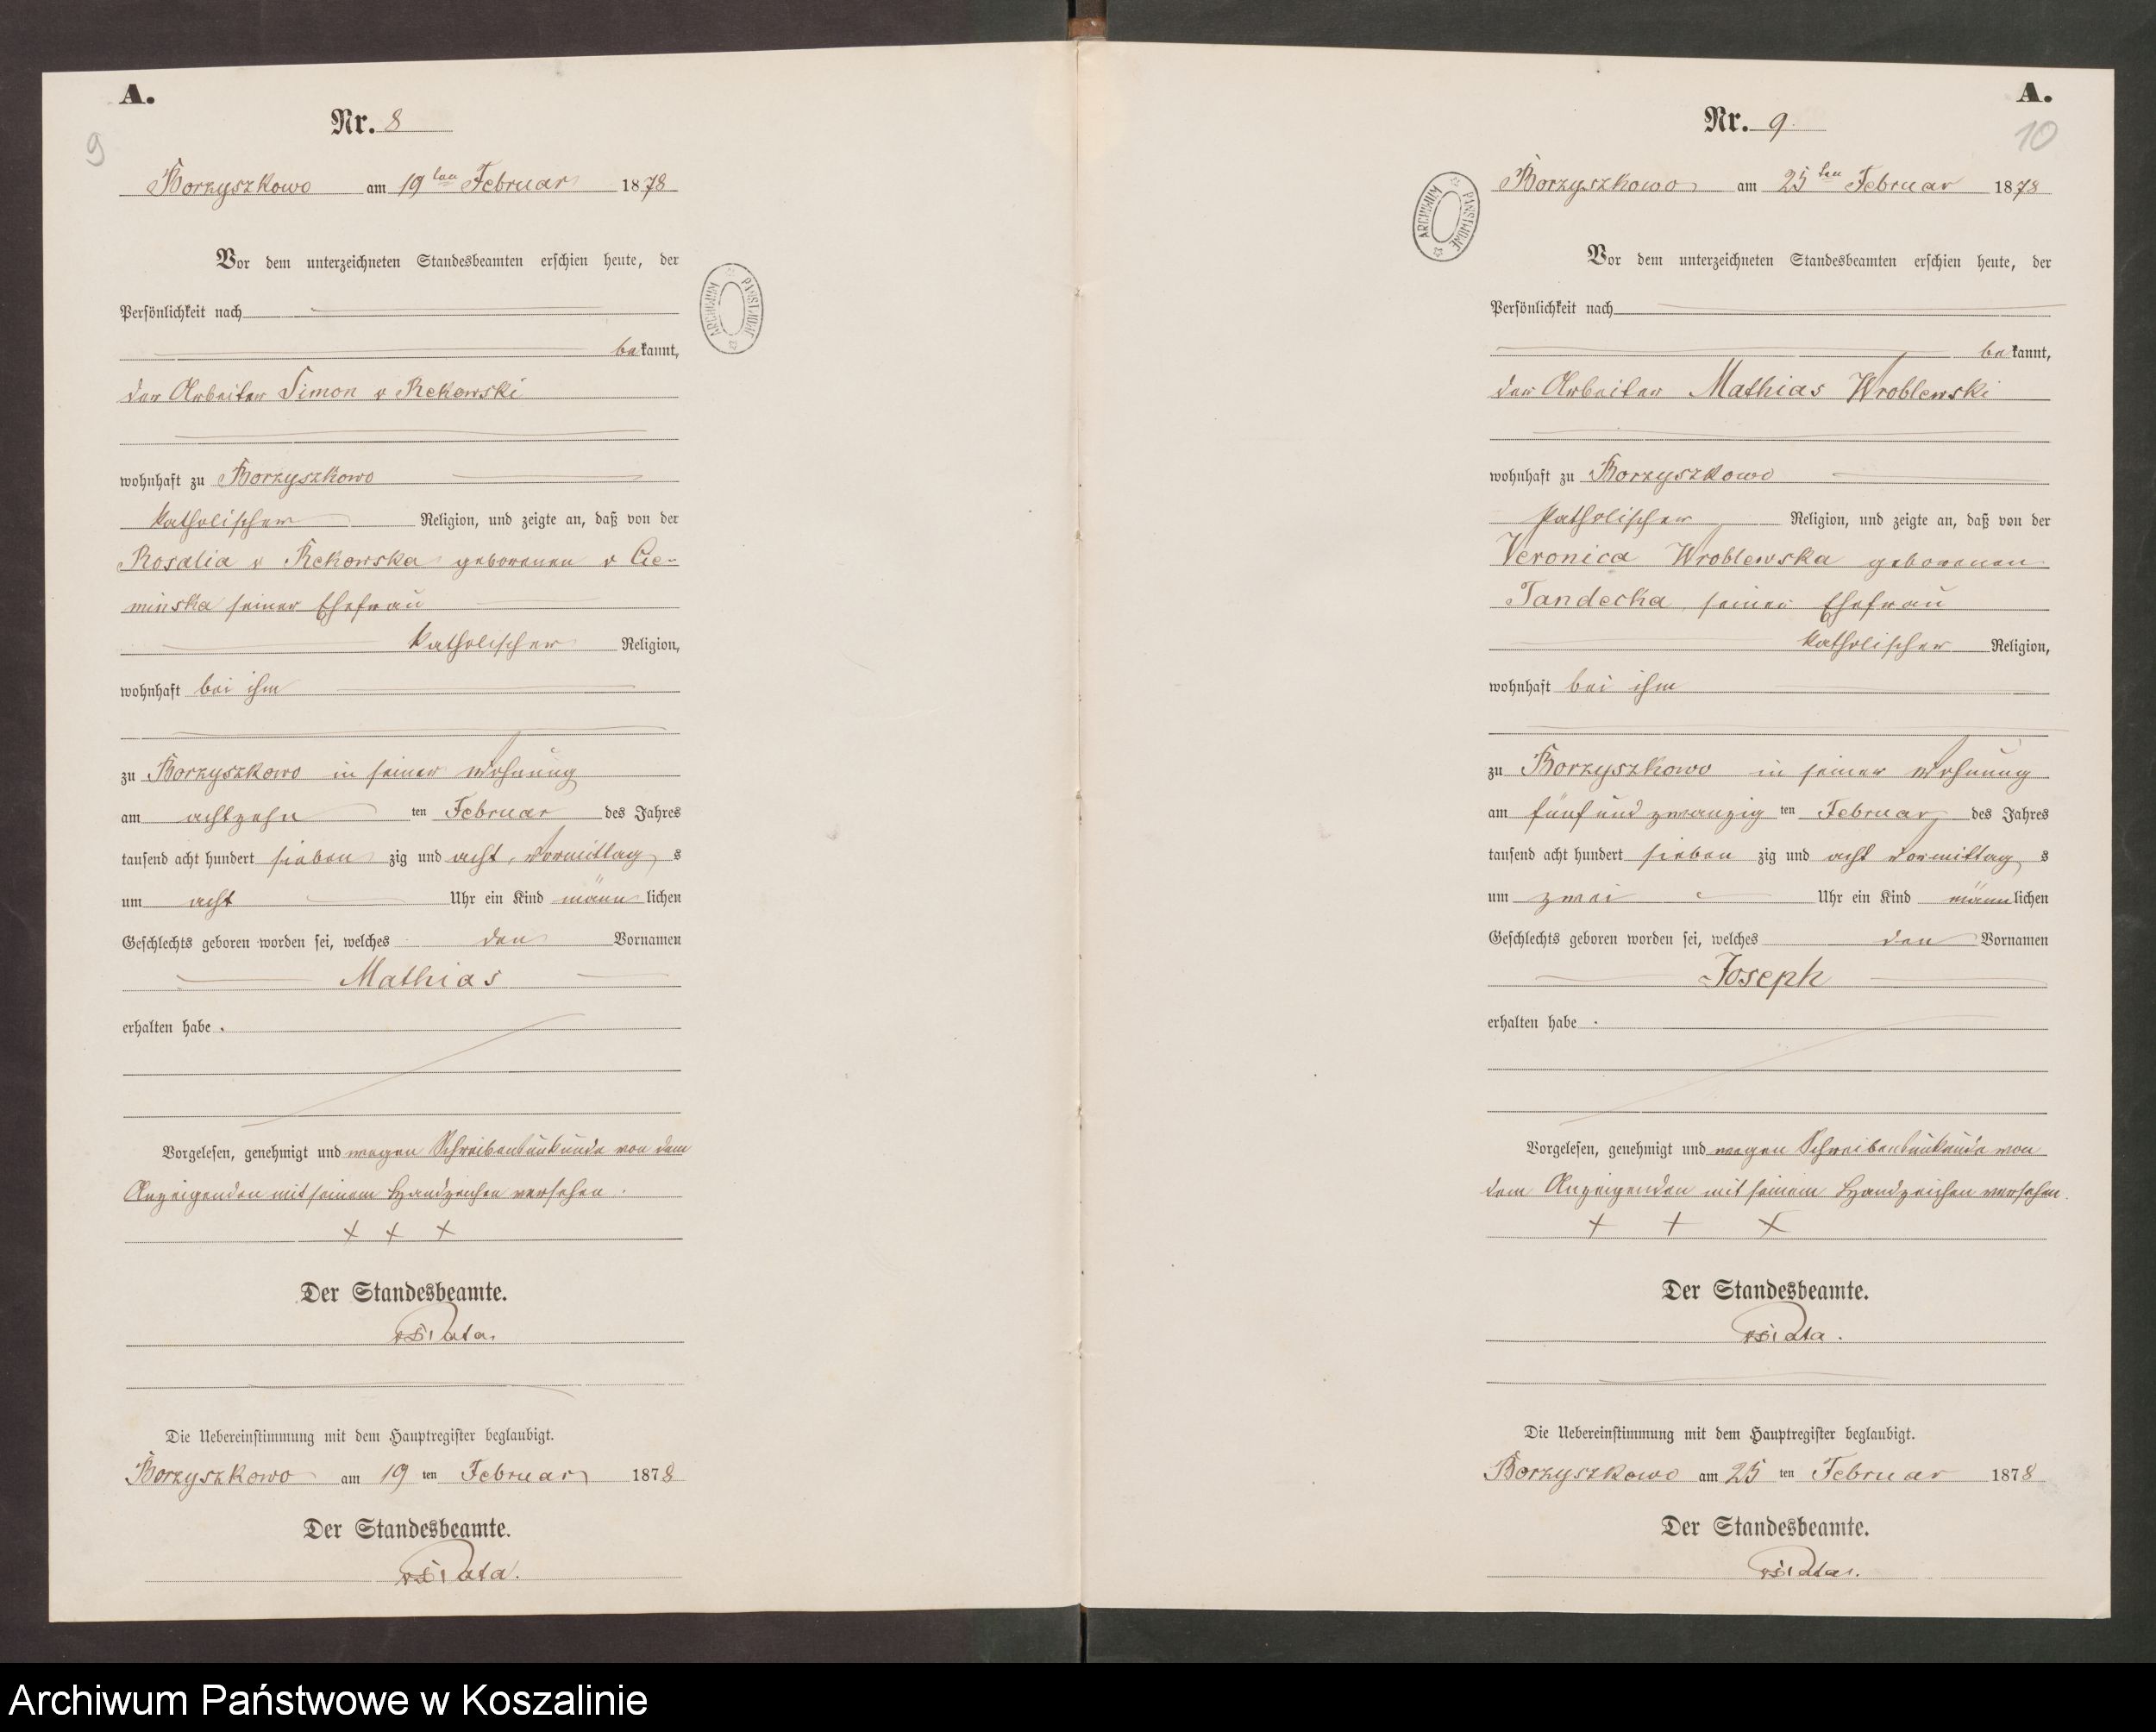 A.
9
Nr. 8
Borzyszkowo am 19ten Februar 1878
Vor dem unterzeichneten Standesbeamten erschien heute, der
Persönlichkeit nach
bekannt,
der Arbeiter Simon v Rekowski
wohnhaft zu Borzyszkowo
katholischer Religion, und zeigte an, daß von der
Rosalia v Rekowska geborenen v Cie-
minska seiner Ehefrau
katholischer Religion,
wohnhaft bei ihm
zu Borzyszkowo in seiner Wohnung
am achtzehn ten Februar des Jahres
tausend acht hundert sieben zig und acht, Vormittag s
um acht Uhr ein Kind männ lichen
Geschlechts geboren worden sei, welches den Vornamen
Mathias
erhalten habe .
Vorgelesen, genehmigt und wegen Schreibensunkunde von dem
Anzeigenden mit seinem Handzeichen versehen.
+ + +
Der Standesbeamte.
Die Uebereinstimmung mit dem Hauptregister beglaubigt.
Borzyszkowo am 19 ten Februar 1878
Der Standesbeamte.
ARCHIWUM PAŃSTWOWE
A.
10
Nr. 9.
Borzyszkowo am 25ten Februar 1878
Vor dem unterzeichneten Standesbeamten erschien heute, der
Persönlichkeit nach
bekannt,
der Arbeiter Mathias Wroblewski
wohnhaft zu Borzyszkowo
katholischer Religion, und zeigte an, daß von der
Veronica Wroblewska geborenen
Tandecka, seiner Ehefrau
katholischer Religion,
wohnhaft bei ihm
zu Borzyszkowo in seiner Wohnung
am fünf und zwanzig ten Februar, des Jahres
tausend acht hundert sieben zig und acht Vormittag s
um zwei Uhr ein Kind männlichen
Geschlechts geboren worden sei, welches den Vornamen
Joseph
erhalten habe .
Vorgelesen, genehmigt und wegen Schreibensunkunde von
dem Anzeigenden mit seinem Handzeichen versehen.
+ + +
Der Standesbeamte.
Die Uebereinstimmung mit dem Hauptregister beglaubigt.
Borzyszkowo am 25 ten Februar 1878
Der Standesbeamte.
ARCHIWUM PAŃSTWOWE
Archiwum Państwowe w Koszalinie